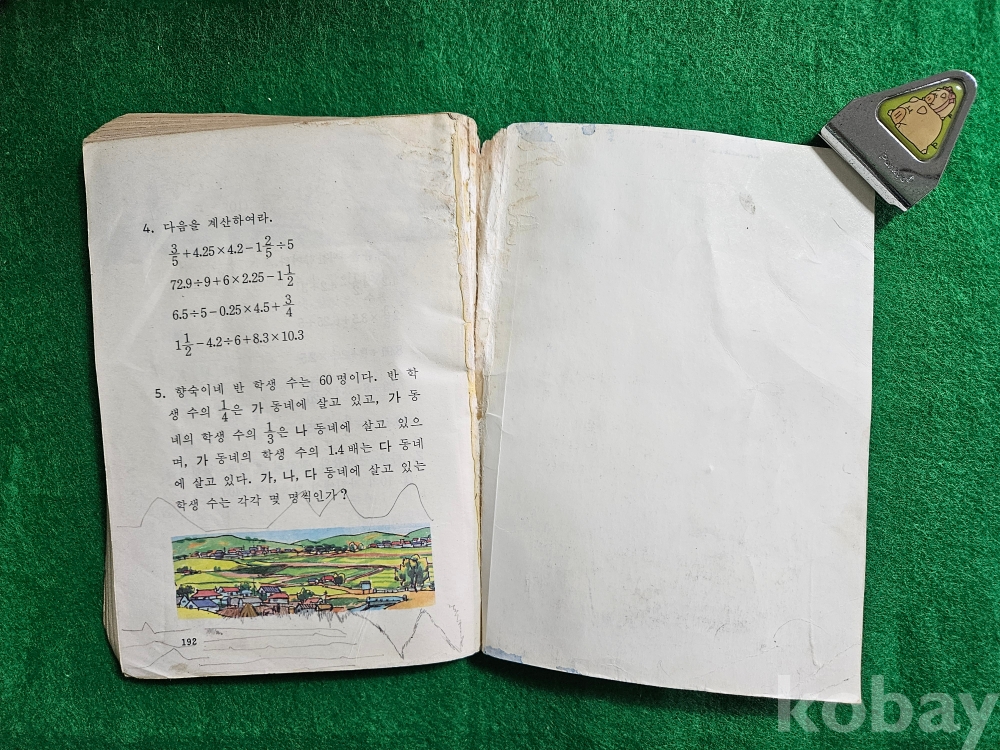 4. 다음을 계산하여라.
3/5+4.25×4.2−1 2/5÷5
72.9÷9+6×2.25−1 1/2
6.5÷5−0.25×4.5+3/4
1 1/2−4.2÷6+8.3×10.3
5. 향숙이네 반 학생 수는 60명이다. 반 학
생 수의 1/4은 가 동네에 살고 있고, 가 동
네의 학생 수의 1/3은 나 동네에 살고 있으
며, 가 동네의 학생 수의 1.4배는 다 동네
에 살고 있다. 가, 나, 다 동네에 살고 있는
학생 수는 각각 몇 명씩인가?
192
kobay